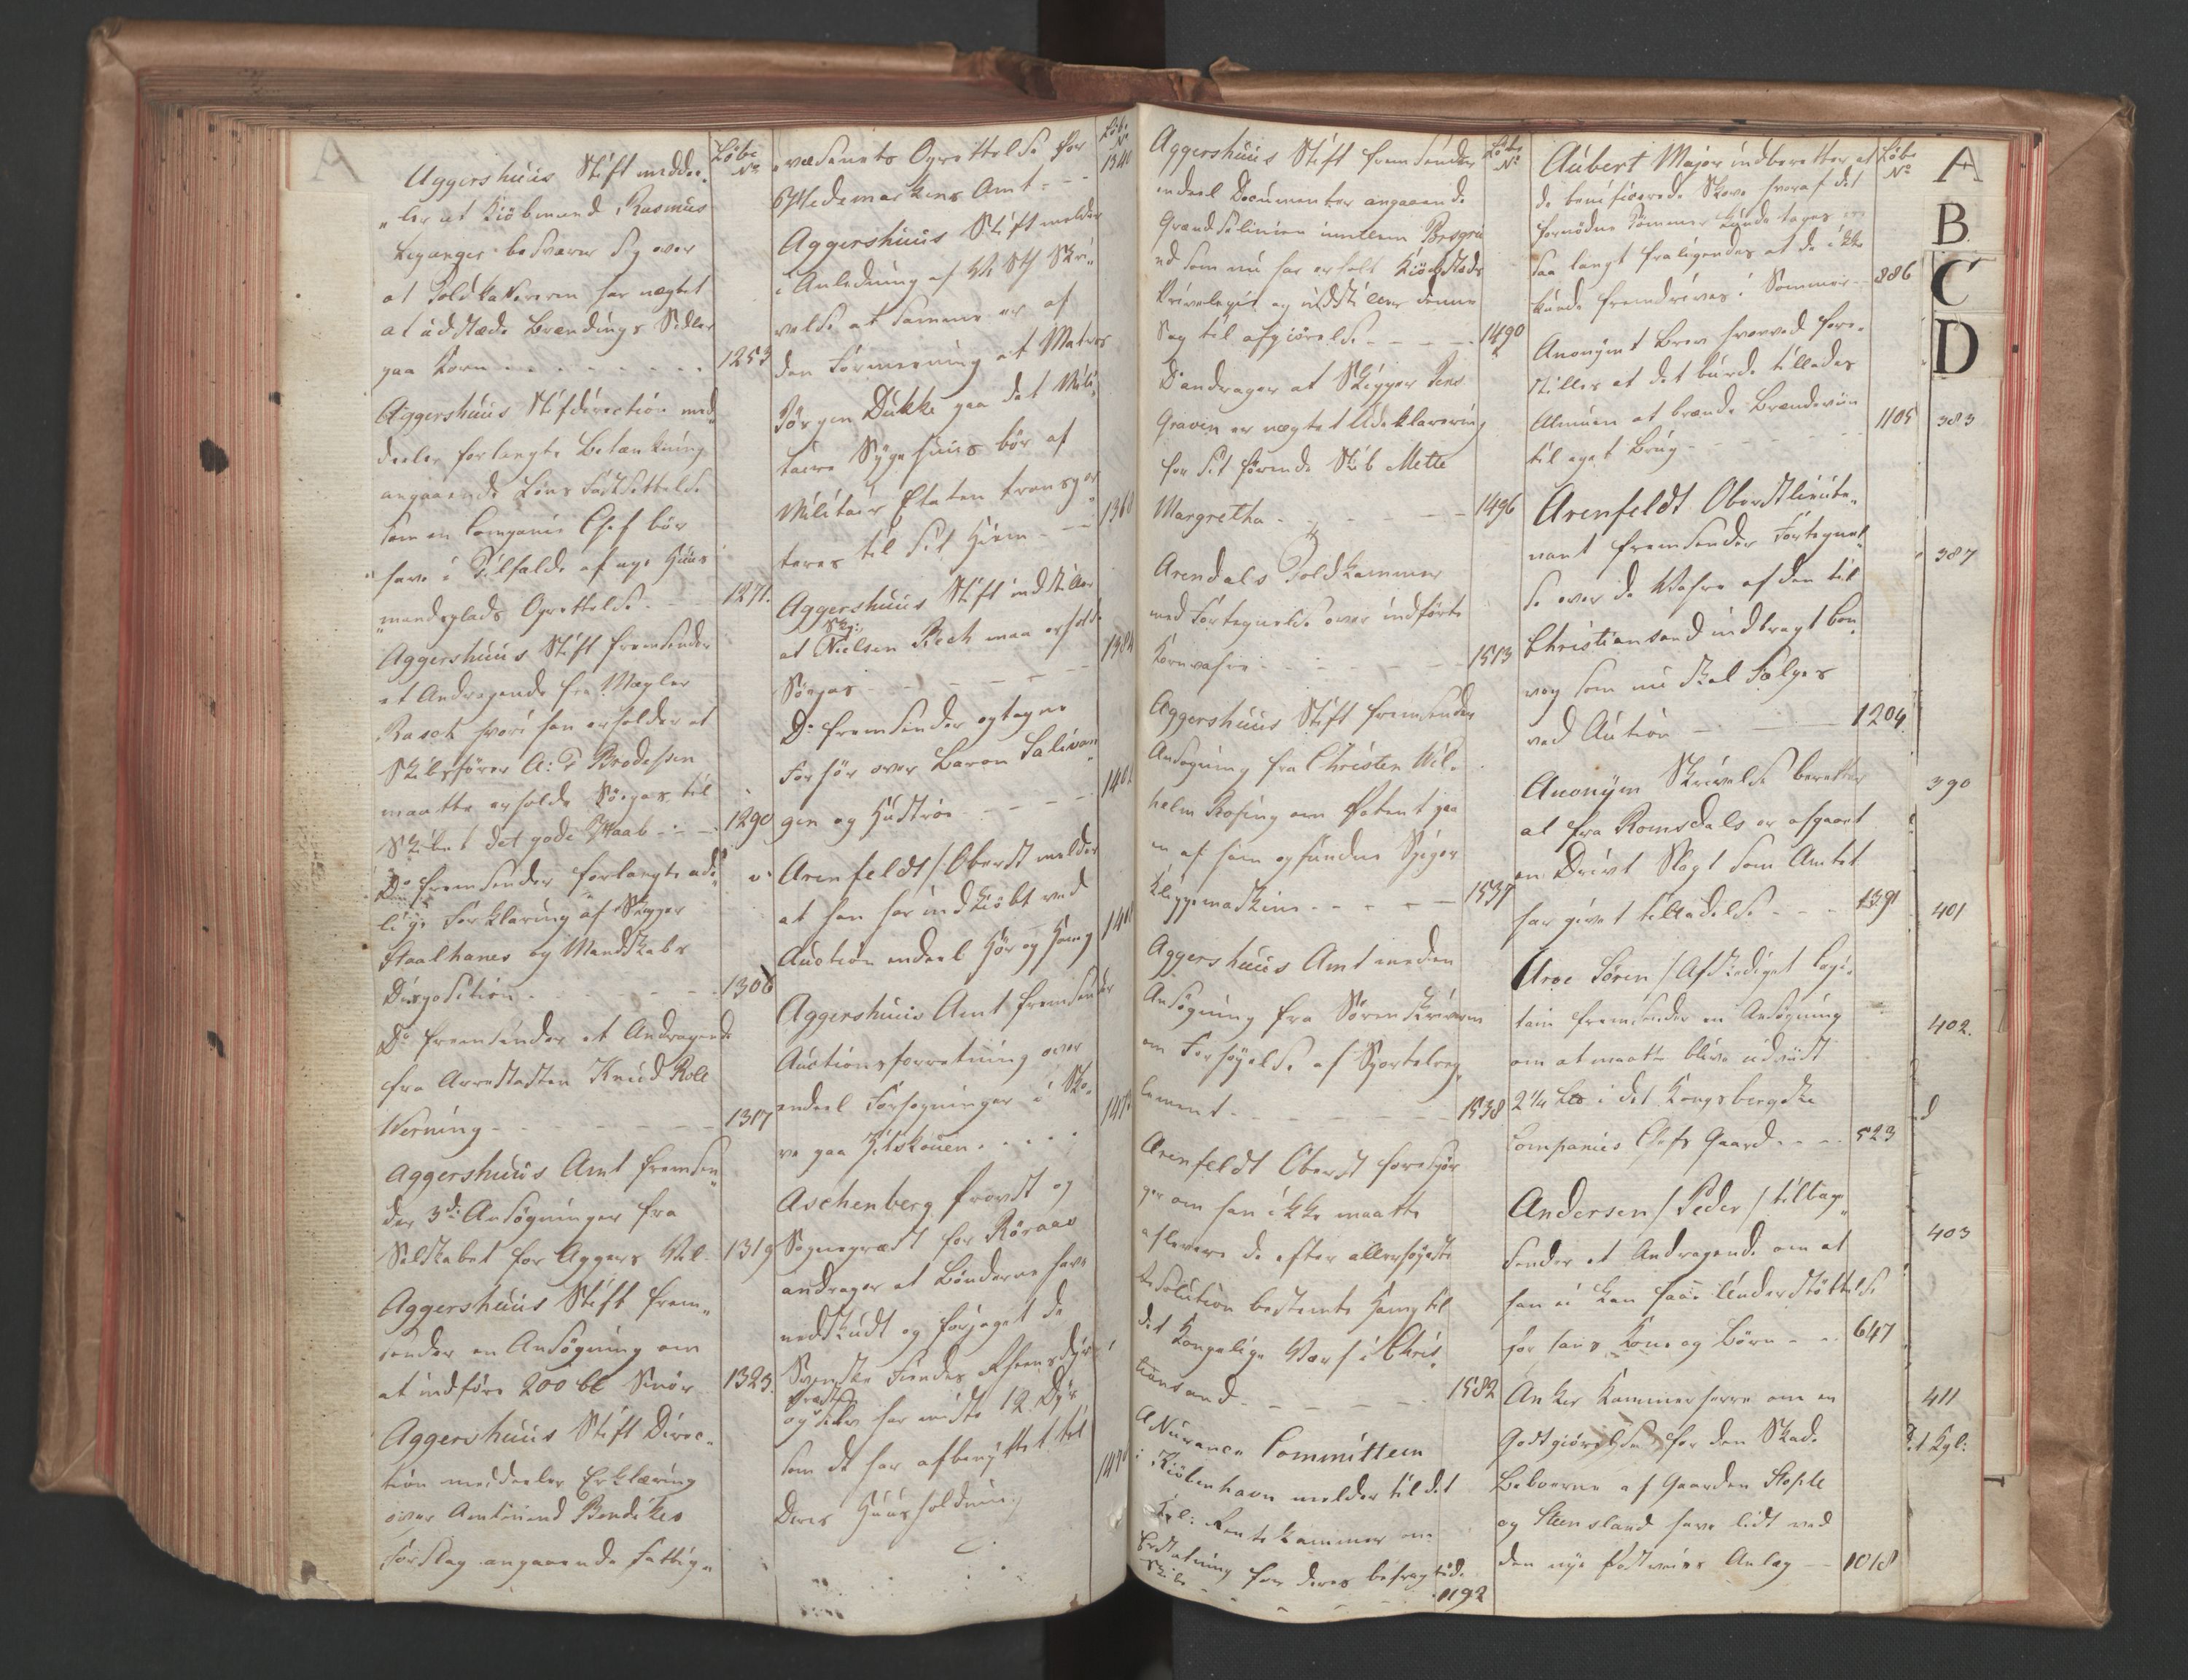 A
Løbe
No
Aggershuus Stift medde-
"ler at Kiøbmand Rasmus
Leganger besværer sig over
at Toldkasereren har nægtet
at udstæde Brændings Sedler
paa Korn . . . . . . . . 1253
Aggershuus Stifdirection med"
deeler forlangte Betænkning
angaaende Løns Fastsættelse
som en Compagnie Chef bør
have i Tilfælde af nye Huus
"mandsplads Oprettelse . - - 1271.
Aggershuus Stift fremsender
et Andragende fra Mægler
Rasch hvori han anholder at
Skibsfører A: P Brodessen
maatte erholde Søepas til
Skibet det gode Haab - - - 1290
Do fremsender forlangte ede"
lige Forklaring af Skipper
Staalhanes og Mandskabs
Disposition . - - - - - - 1306
Do fremsender et Andragende
fra Arrestanten Knud Roll
Werning - - - - - - - - 1317
Aggershuus Amt fremsen"
der 3de Ansøgninger fra
Selskabet for Aggers Vel. 1319
Aggershuus Stift frem"
sender en Ansøgning om
at indføre 200 bl Smør 1323.
Aggershuus Stift Direc-
tion meddeeler Erklæring
over Amtmand Bendikes
Forslag angaaende Fattig"
Løb.
No
væsenets Oprettelse for 1340
Hedemarkens Amt - - -
Aggershuus Stift melder
i Anledning af
velse at samme er af
den Formening at Matros
Jørgen Dukke paa det Mili"
taire Sygehuus bør af
Militair Etaten transpor"
teres til sit Hiem - - - 1360
Aggershuus Stift indstiller
Sky:
at Nielsen Beck maa erholde
Søepas - - - - - - -
Do fremsender optagne
Forhør over Baron Salivan"
gen og Hustroe - - - - -
Arenfeldt / Oberst melder
at han har indkiøbt ved
Auction endeel Hør og Hamp
Aggershuus Amt fremsender
Auctionsforretning over
endeel Forsøgninger i Sko-
ve paa Hitskouen . . . . .
Aschenberg Provst og
Sognepræst for Røraas
andrager at Bønderne have
nedskudt og forjaget de
Svenske Finders Rheensdyr
og selv har mistet 12 Dyr
som dt har afbenyttet til
Deres Huusholdning
Løbe
No
Aggershuus Stift fremsender
endeel Documenter angaaende
Grændselinien imellem Bragerø
ed som nu har erholt Kiøbstads
Privelegie og udstiller denne
Sag til afgiørelse - - - - - 1490
Do andrager at Skipper Jens
Graven er nægtet Udeklarering
for sit førende Skib Mette
Margretha - - - - - - 1496
Arendals Toldkammer
med Fortegnelse over indførte
Kornvahre - - - - - - 1513
Aggershuus Stift fremsender
Ansøgning fra Christen Wil-
helm Rosing om Patent paa
en af ham opfunden Spiger
Klippemaskine - - - - - 1537
Aggershuus Amt med en
Ansøgning fra Sørenskriveren
om Forhøyelse af Sportelreg"
lement - - - - - - - - 1538
Arenfeldt Oberst forespør
ger om han ikke maatte
aflevere de efter allerhøyeste
Resolution bestemte Hamp til
det Kongelige Værf i Chris"
tiansand - - - - - - - 1582
Committeen
i Kiøbenhavn melder til det
Kgl: Rentekammer om
Erstatning for deres befragtede
Skibe - - - - - - 1192
Løbe
No
Aubert Major indberetter at
de benificerede Skove hvoraf det
fornødne Tømmer kunde tages er
saa langt fraliggendes at de ikke
kunde fremdrives i Sommer - - 886
Anonymt Brev hvorved fore-
stilles at det burde tillades
Almuen at brænde Brændeviin
til eget Brug - - - - - - 1105
Arenfeldt Oberstlieute-
nant fremsender Fortegnel"
se over de Wahre af den til
Christiansand indbragt Con"
voy som nu skal Sælges
ved Auction - - - - - 1204.
Anonym Skrivelse beretter
at fra Romsdals er afgaaet
en Drivt Slagt som Amtet
har givet tilladelse - - - 1391
Aroe Søren / Afskediget Capi-
tain fremsender en Ansøgning
om at maatte blive udviist
2 1/4 i det Kongsbergske
Compagnies Chefs Gaard - - - 523
Andersen / Peder / tilbage"
sender et Andragende om at
han ei kan faae Understøttelse
for hans Kone og Børn - - . 647
Anker Kammerherre om en
Godtgiørelse for den Skade
Beboerne af Gaarden
og Steensland have lidt ved
den nye Postveies Anlæg - - 1018
A
B
C
D
383
387
390
401
402.
403
411
Det Kgl: